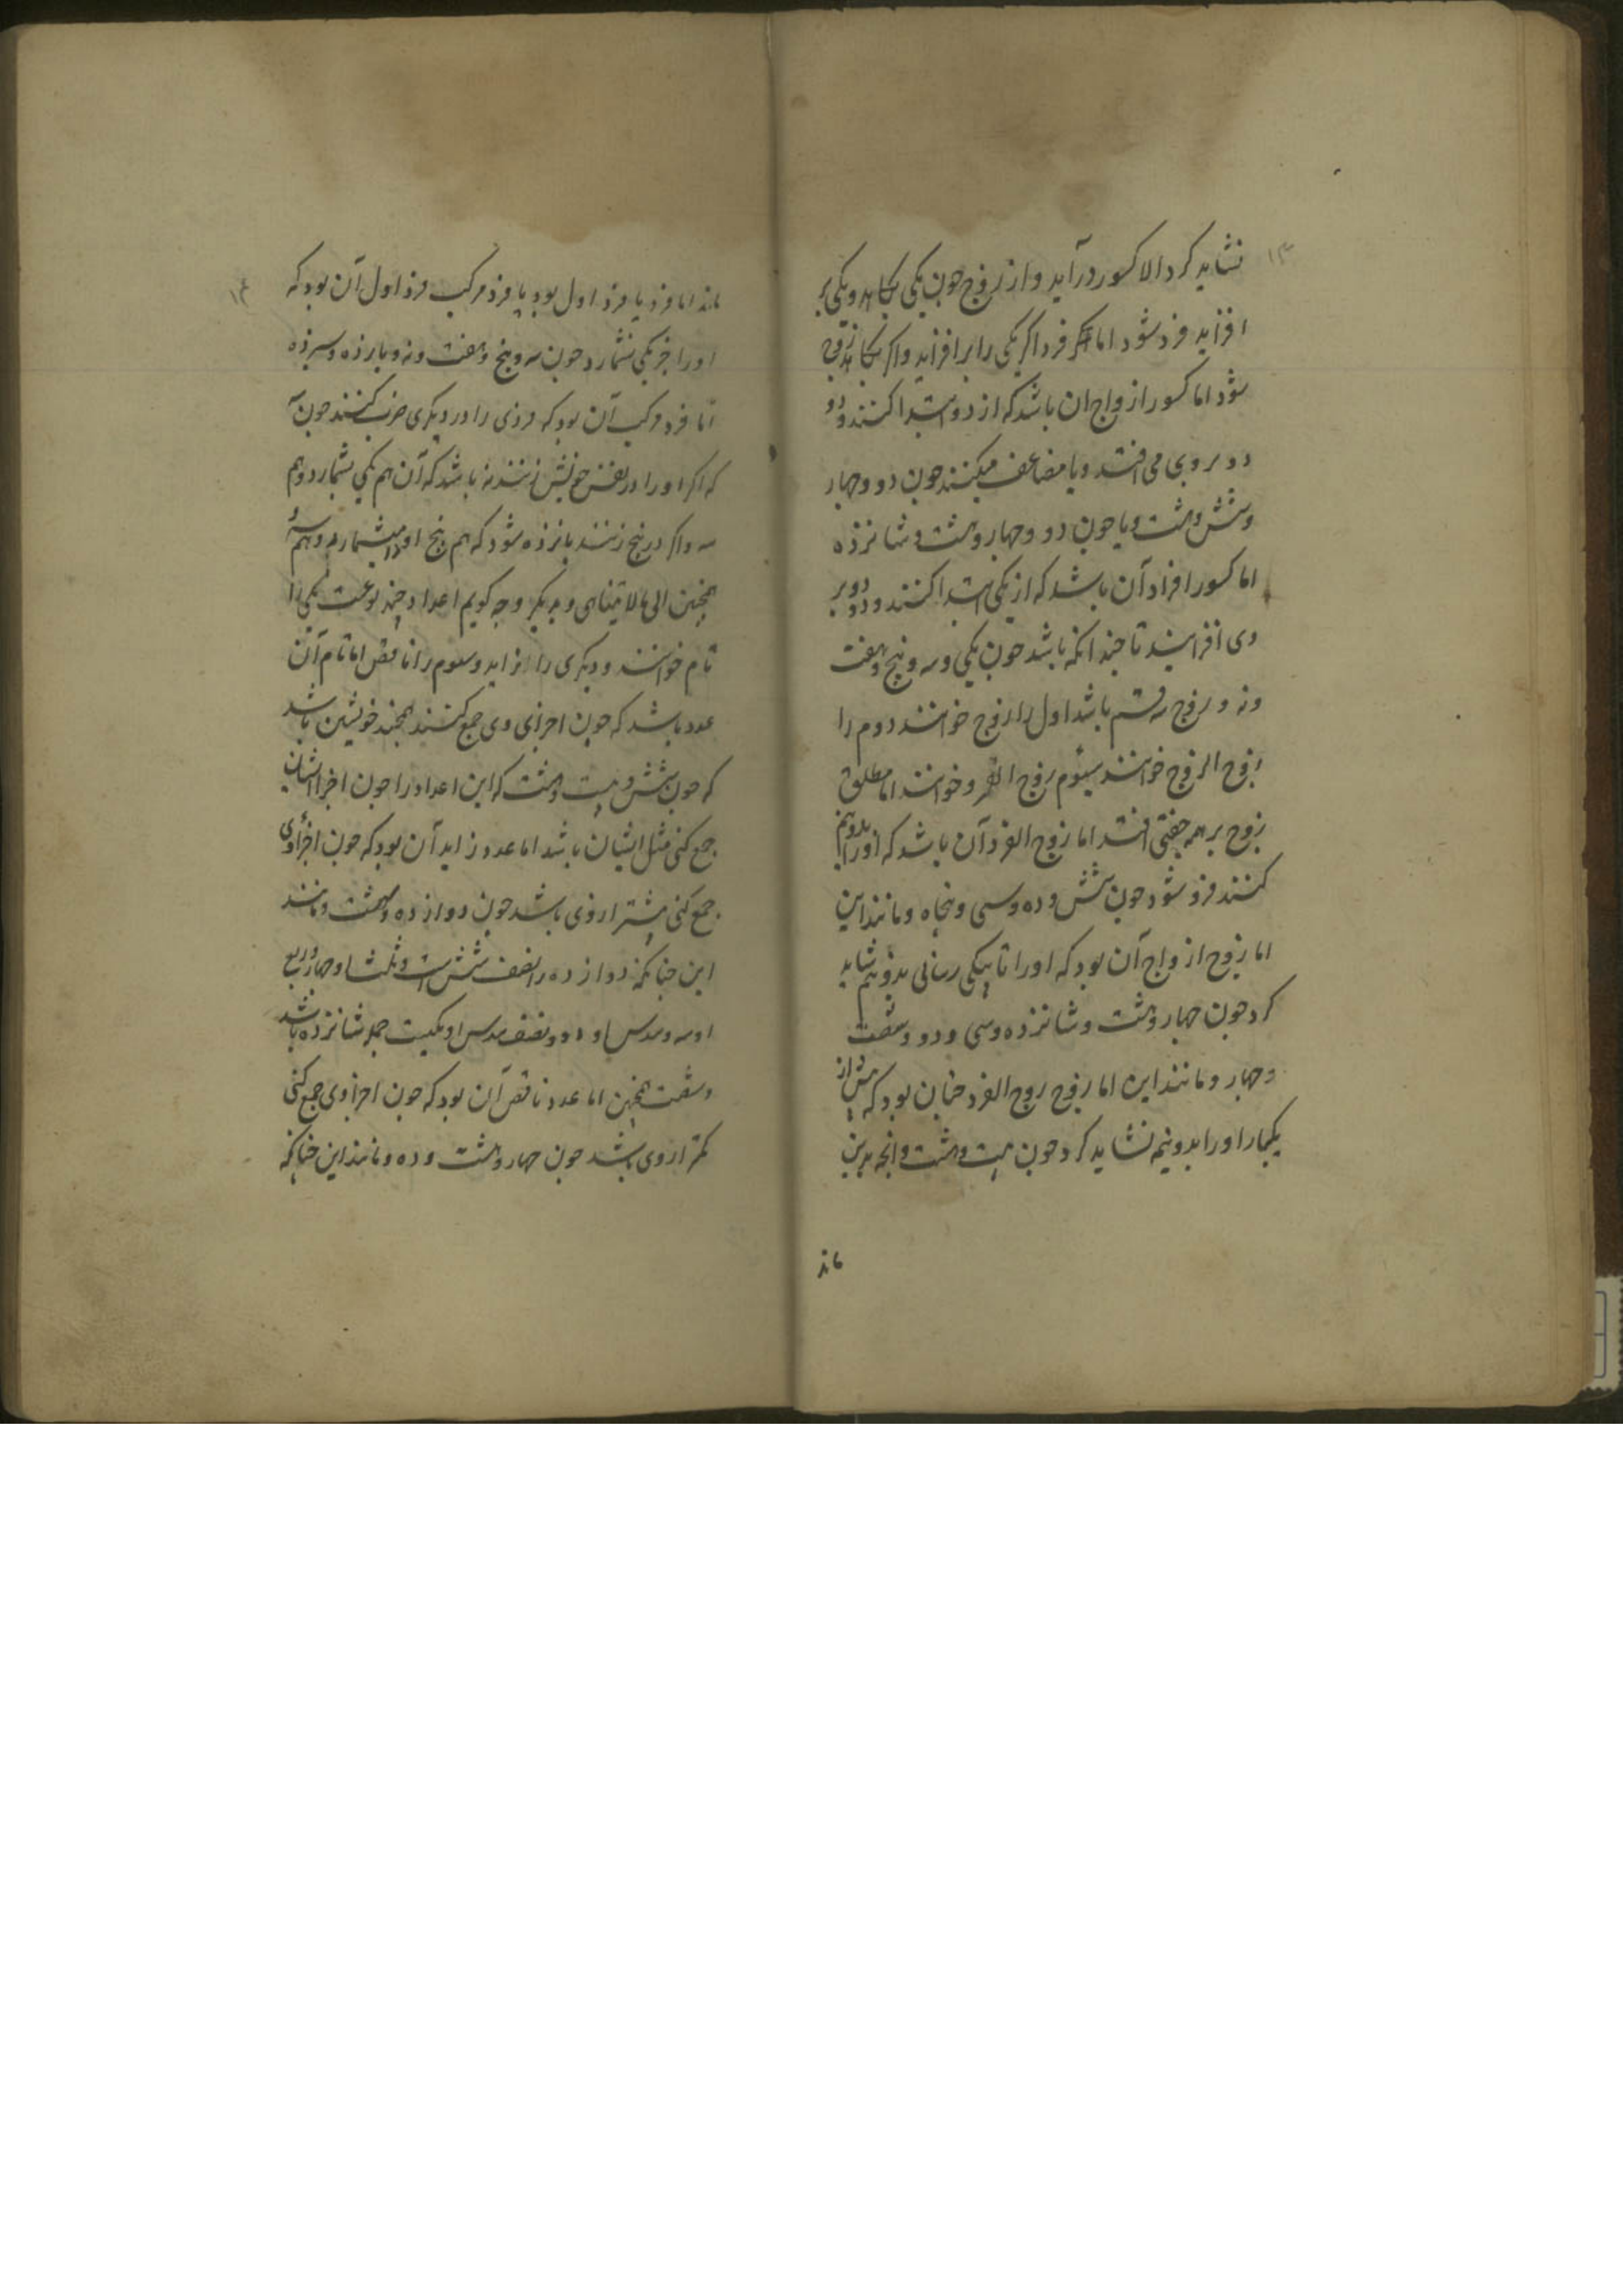 ۱۳
نشاید کرد الا کسور درآید و از زوج چون یکی بکاهد و یکی بر
افزاید فرد شود اما فرد اگر یکی را بر افزاید و اگر بکاهد زوج
شود اما کسور ازواج ان باشد که از دو ابتدا کنند و دو
دو بر وی می افتد و یا مضاعف میکنند چون دو و چهار
و شش و هشت و یا چون دو و چهار و هشت و شانزده
اما کسور افراد آن باشد که از یکی ابتدا کنند و دو دو بر
وی افزایند تا چندانکه باشد چون یکی و سه و پنج و هفت
و نه و زوج سه قسم باشد اول را زوج خوانند دوم را
زوج الزوج خوانند سیوم زوج الفرد خوانند اما مطلق
زوج بر همه جفتی افتد اما زوج الفرد آن باشد که اورا بدو نیم
کنند فرد شود چون شش و ده و سی و پنجاه و مانند این
اما زوج ازواج آن بود که اورا تا بیکی رسانی بدو نیم شاید
کرد چون چهار و هشت و شانزده و سی و دو و شصت
و چهار و مانند این اما زوج زوج الفرد چنان بود که بیش از
یکبار اورا بدو نیم نشاید کرد چون بیست و هشت و آنچه بدین
ماند
۱۴
ماند اما فرد یا فرد اول بود یا فرد مرکب فرد اول آن بود که
اورا جز یکی نشمارد چون سه و پنج و هفت و نه و یازده و سیزده
اما فرد مرکب آن بود که فردی را در دیگری ضرب کنند چون سه
که اگر اورا در نفس خویش زنند نه باشد که آن هم یکی بشمارد و هم
سه و اگر در پنج زنند پانزده شود که هم پنج اورا بشمارد و هم سه
همچنین الی مالا یتناهی و بدیگر وجه گویم اعداد چند نوعست یکی را
تام خوانند و دیگری را زاید و سوم را ناقص اما تام آن
عدد باشد که چون اجزای وی جمع کنند همچند خویشتن باشد
که چون شش و بیست و هشت که این اعداد را چون اجزا ایشان
جمع کنی مثل ایشان باشد اما عدد زاید آن بود که چون اجزاء وی
جمع کنی بیشتر از وی باشد چون دوازده و هشت و مانند
این چنانکه دوازده را نصف شش است و ثلث او چهار و ربع
او سه و سدس او دو و نصف سدس او یکیست جمله شانزده باشد
و شصت همچنین اما عدد ناقص آن بود که چون اجزاء وی جمع کنی
کمتر از وی باشد چون چهار و هشت و ده و مانند این چنانکه